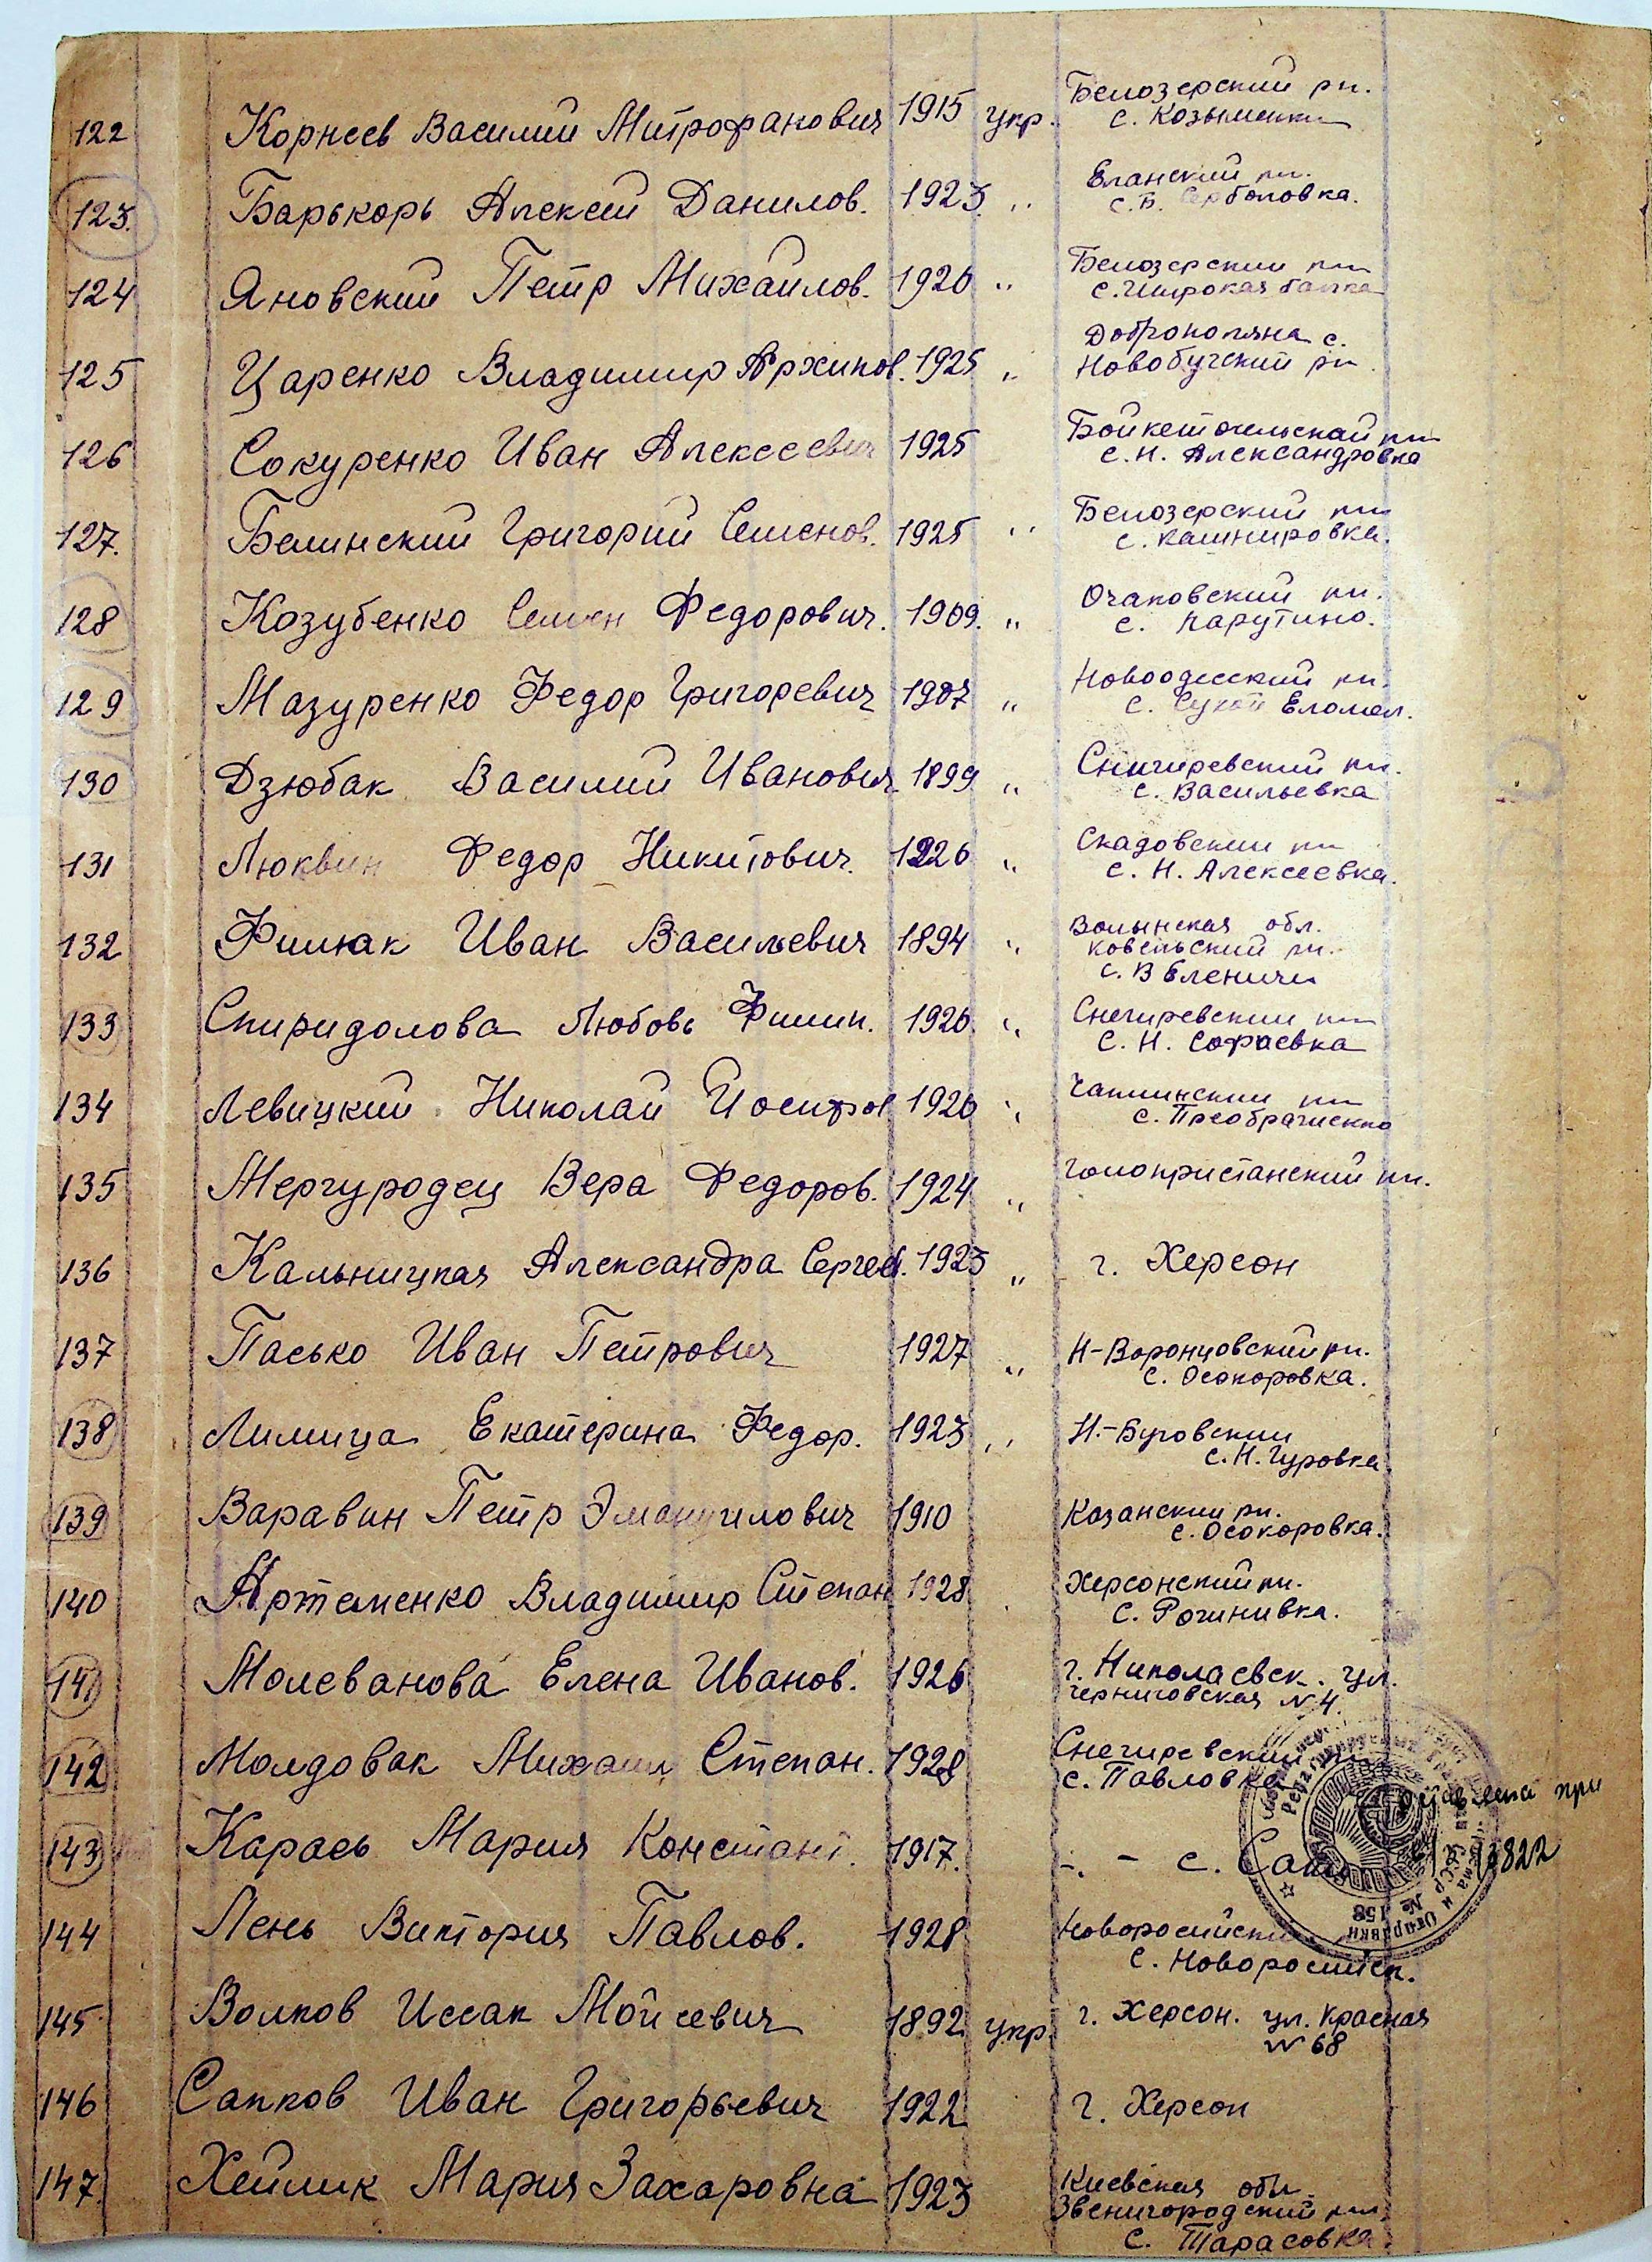 122 Корнеев Василий Митрофанович 1915 укр. Белозерский рн.
с. Козымские
123. Барькорь Алексей Данилов. 1923 „ Еланский рн.
с. Б. Серболовка.
124 Яновский Петр Михайлов. 1926 „ Белозерский рн
с. Широкая балка
125 Царенко Владимир Архипов. 1925 „ Доброполяна с.
Новобугский рн
126 Сокуренко Иван Алексеевич 1925 рн
с. Н. Александровка
127. Белинский Григорий Семенов. 1925 „ Белозерский рн
с. Камнировка.
128 Козубенко Семен Федорович. 1909. „ Очаковский рн.
с. Парутино.
129 Мазуренко Федор Григоревич 1907 „ Новоодесский рн.
с. Сухой Еломел.
130 Дзюбак Василий Иванович 1899 „ Снигиревский рн.
с. Васильевка
131 Люквин Федор Никитович. 1926 „ Скадовский рн
с. Н. Алексеевка.
132 Филюк Иван Васильевич 1894 „ Волынская обл.
Ковельский рн.
с. В Еленичи
133 Спиридолова Любовь Филип. 1926. „ Снегиревский рн
с. Н. Софаевка
134 Левицкий Николай Иосифов 1926 „ Чаплинский рн
с. Преображенко
135 Мергуродец Вера Федоров. 1924 „ Голопристанский рн.
136 Кальницкая Александра Сергеев. 1923 „ г. Херсон
137 Пасько Иван Петрович 1927 „ Н-Воронцовский рн.
с. Осокоровка.
138 Лимица Екатерина Федор. 1923 „ Н.-Буговский
с. Н. Гуровка
139 Варавин Петр Эмануилович 1910 Казанский рн.
с. Осокоровка.
140 Артеменко Владимир Степан 1928 Херсонский рн.
с. Рогинивка.
141 Молеванова Елена Иванов. 1926 г. Николаевск. ул.
Черниговская N 4.
142 Молдовак Михаил Степан. 1928 Снегиревский рн
с. Павловка
143 Карась Мария Констант. 1917. -. - с.
144 Лень Виктория Павлов. 1928 Новоросийский
с. Новоросийск.
145 Волков Иссак Мойсевич 1892 укр. г. Херсон. ул. Красная
N 68
146 Сапков Иван Григорьевич 1922 г. Херсон
147. Хейлик Мария Захаровна 1923 Киевская обл.
Звенигородский рн.
с. Тарасовка
при
3822
№ 158